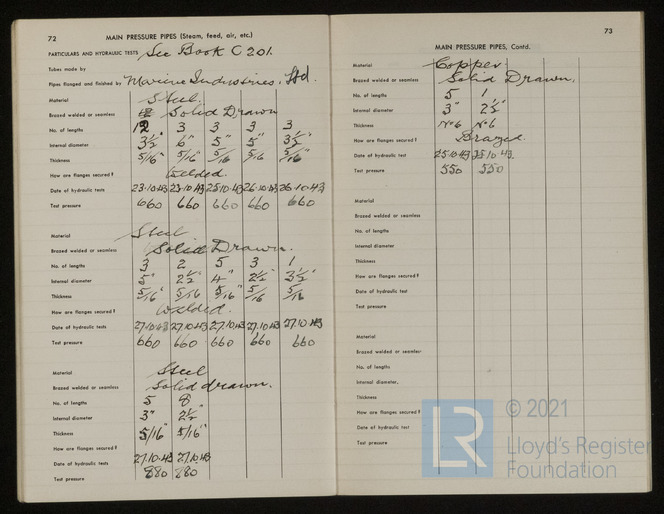 72
MAIN PRESSURE PIPES (Steam, feed, air, etc.)
PARTICULARS AND HYDRAULIC TESTS See Book C 201.
Tubes made by
Pipes flanged and finished by Marine Industries. Ltd.
Material Steel
Brazed welded or seamless Solid Drawn
No. of lengths 12 3 3 3 3
Internal diameter 3½" 6" 5" 5" 3½"
Thickness 5/16" 5/16" 5/16 5/16 5/16"
How are flanges secured? Welded.
Date of hydraulic tests 23.10.43 23.10.43 25.10.43 26.10.43 26.10.43
Test pressure 660 660 660 660 660
Material Steel
Brazed welded or seamless Solid Drawn.
No. of lengths 3 2 5 3 1
Internal diameter 5" 2½" 4" 2½" 3½"
Thickness 5/16" 5/16 5/16" 5/16 5/16
How are flanges secured? Welded.
Date of hydraulic tests 27.10.43 27.10.43 27.10.43 27.10.43 27.10.43
Test pressure 660 660 660 660 660
Material Steel
Brazed welded or seamless Solid drawn.
No. of lengths 5 8
Internal diameter 3" 2½"
Thickness 5/16" 5/16"
How are flanges secured?
Date of hydraulic tests 27.10.43 27.10.43
Test pressure 880 880
73
MAIN PRESSURE PIPES, Contd.
Material Copper.
Brazed welded or seamless Solid Drawn.
No. of lengths 5 1
Internal diameter 3" 2½"
Thickness No 6 No 6
How are flanges secured? Brazed.
Date of hydraulic test 25.10.43 25.10.43.
Test pressure 550 550
Material
Brazed welded or seamless
No. of lengths
Internal diameter
Thickness
How are flanges secured?
Date of hydraulic tests
Test pressure
Material
Brazed welded or seamless
No. of lengths
Internal diameter.
Thickness
How are flanges secured?
Date of hydraulic test
Test pressure
LR
© 2021
Lloyd's Register
Foundation